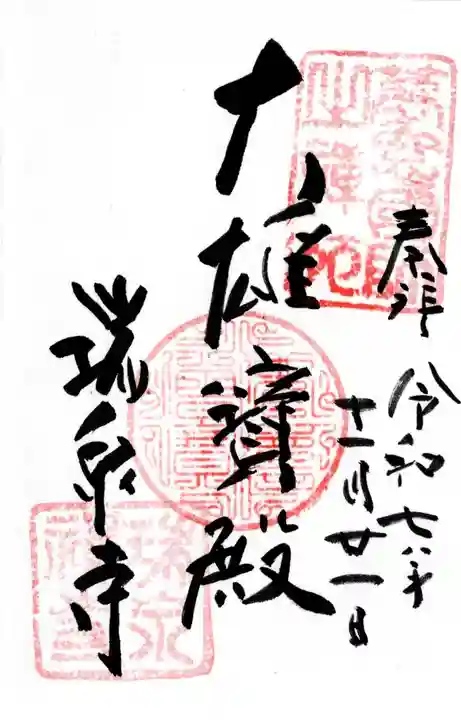 奉拝 令和七年
十一月廿一日
大雄寶殿
瑞泉寺